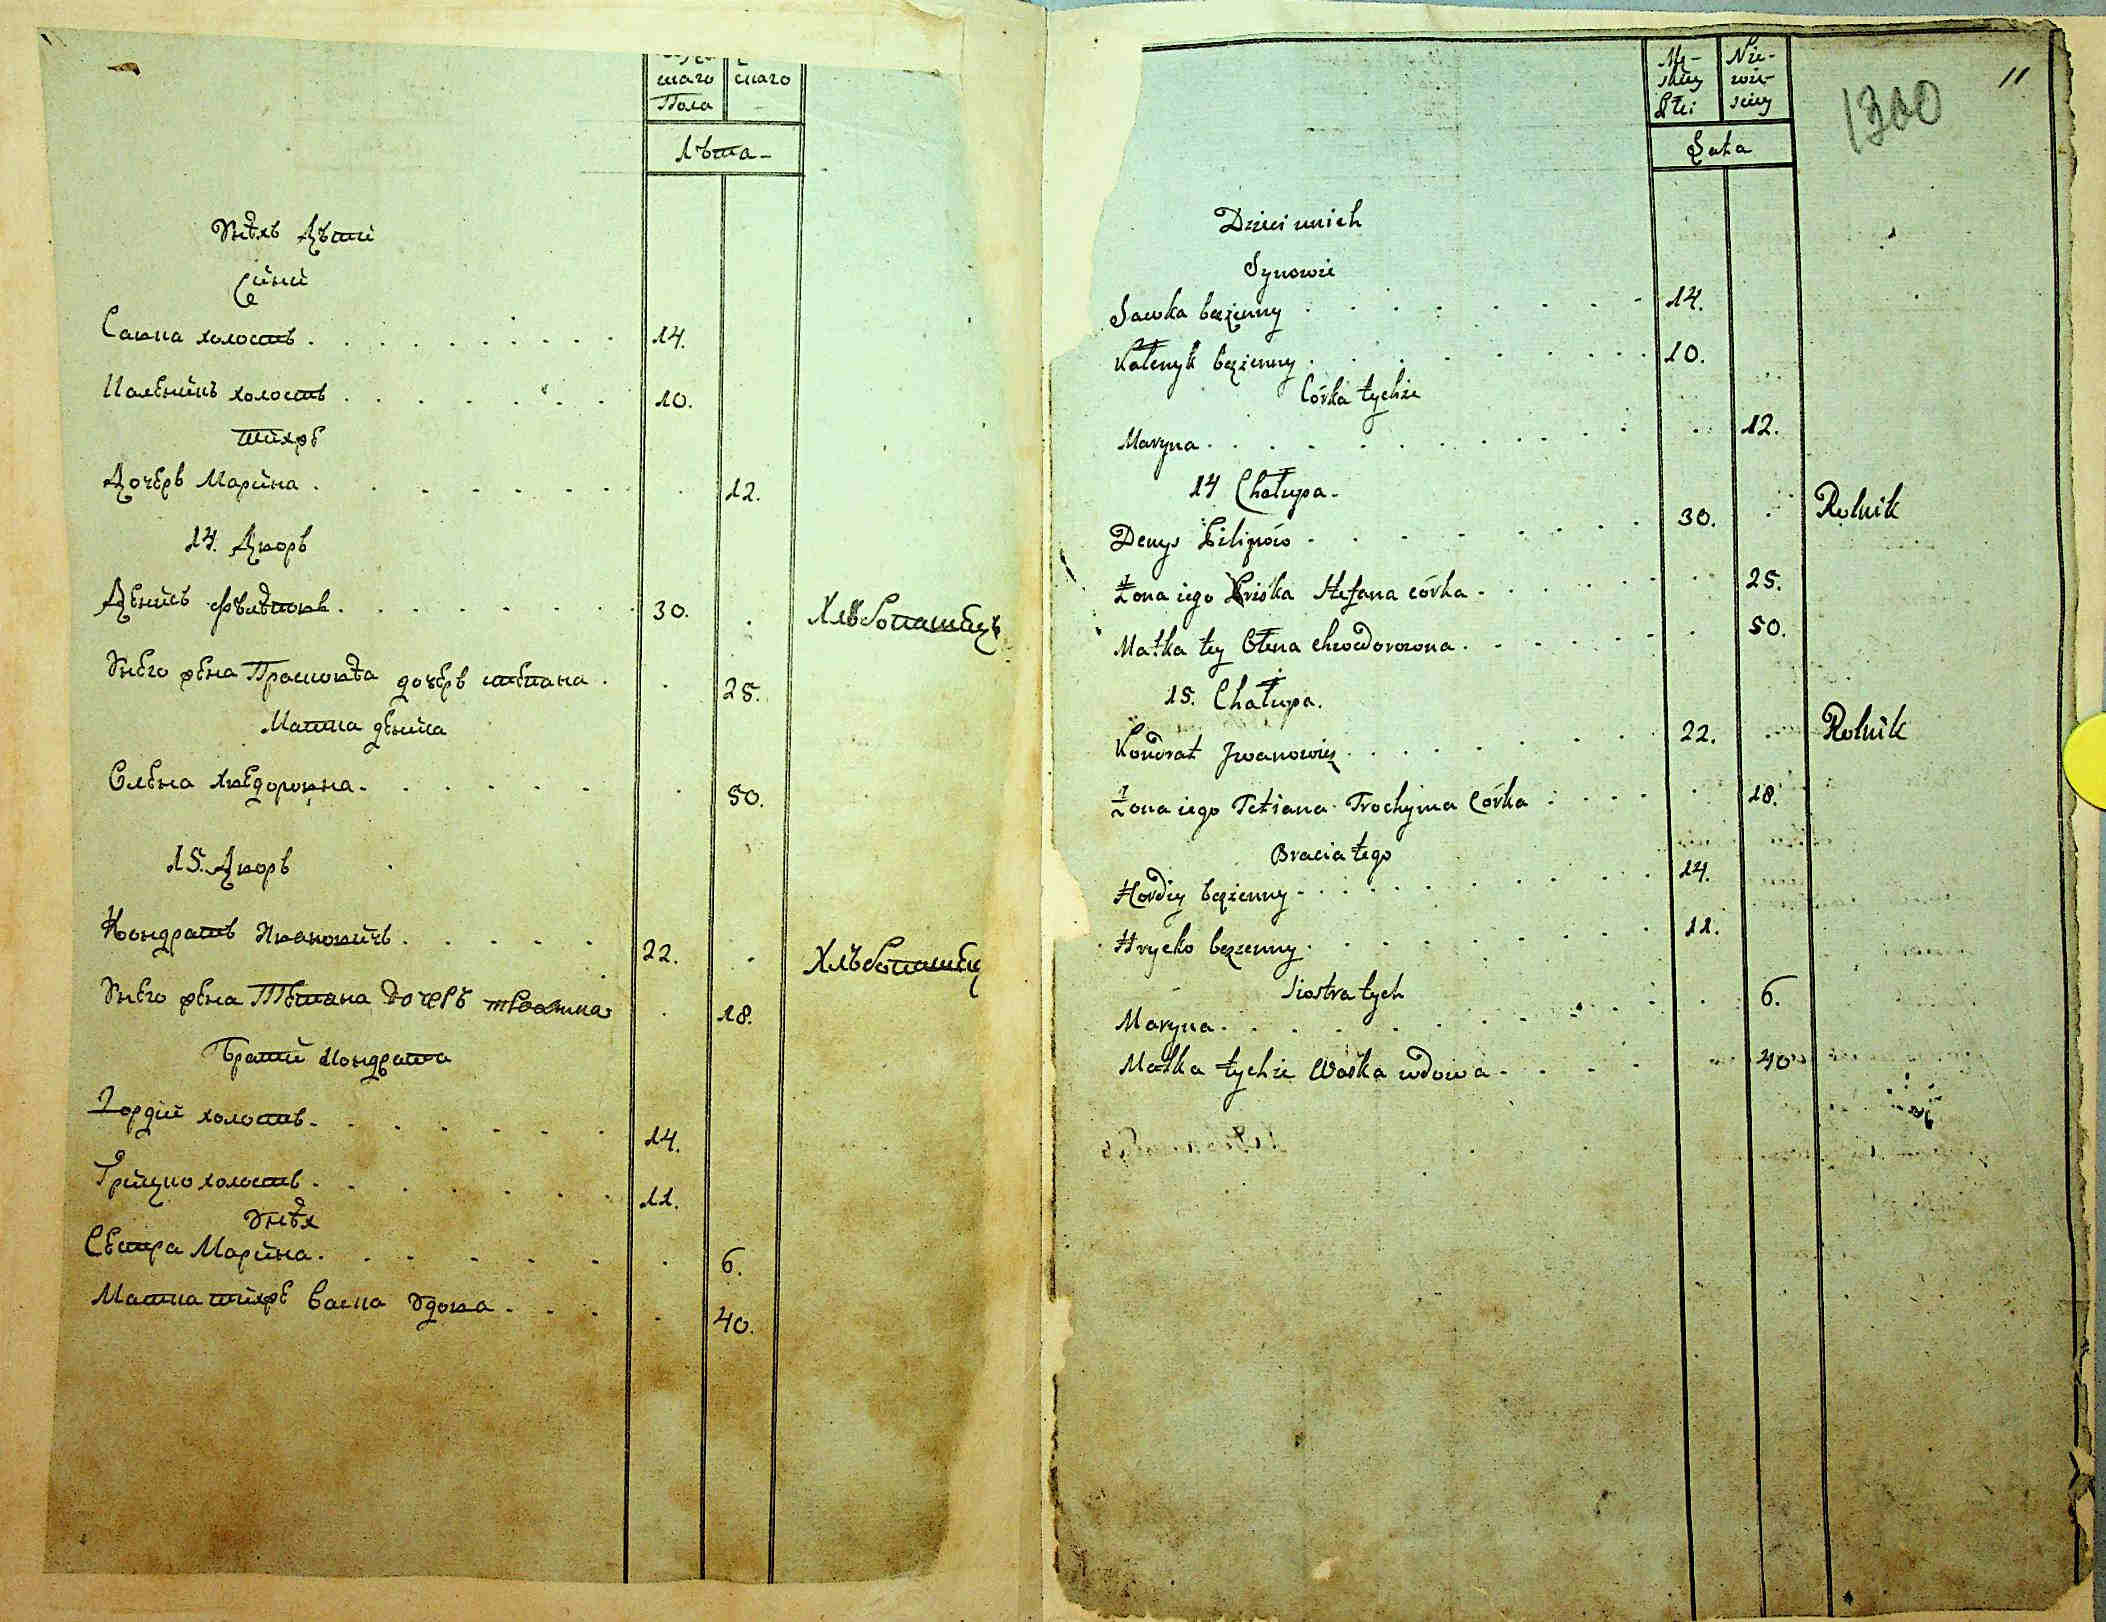 скаго
Пола
скаго
Лѣта
Унѣхъ Дѣти
Сини
Савка холостъ 14.
Калѣникъ холостъ 10.
тихже
Дочеръ Марина 12.
14. Дворъ
Денисъ 30. Хлѣбопашецъ
Унего жена дочеръ степана 25.
Матка дениса
Олена Хведоровна 50.
15. Дворъ
Кондратъ Ивановичъ 22. Хлѣбопашец
Унего жена Тетяна дочеръ 18.
Брати Кондрата
Гордій холостъ 14.
Грицко холостъ 11.
Унѣх
Сестра Марина 6.
Матка тихже Васка Удова 40.
Mę-
skiey
Płci
Nie-
wie-
sciey
Lata
1300
11
Dzieci unich
Synowie
Sawka bezżenny 14.
Kalenyk bezżenny 10.
Córka tychże
Maryna 12.
14 Chałupa
Denys Filipów 30. Rolnik
Żona iego Stefana córka 25.
Matka tey Ołena Chwedorowna 50.
15. Chałupa.
Kondrat Jwanowicz 22. Rolnik
Żona iego Tetiana Trochyma Córka 18.
Bracia tego
Hordiy bezżenny 14.
Hrycko bezzenny 11.
Siostra tych
Maryna 6.
Matka tychże Waśka wdowa 40